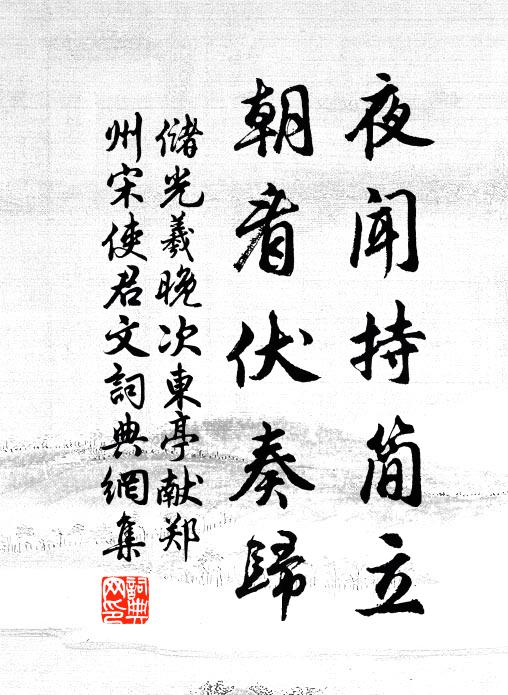 夜闻持简立
朝看伏奏歸
储光羲晚次東亭献郑
州宋使君文詞典網集
詞典网印